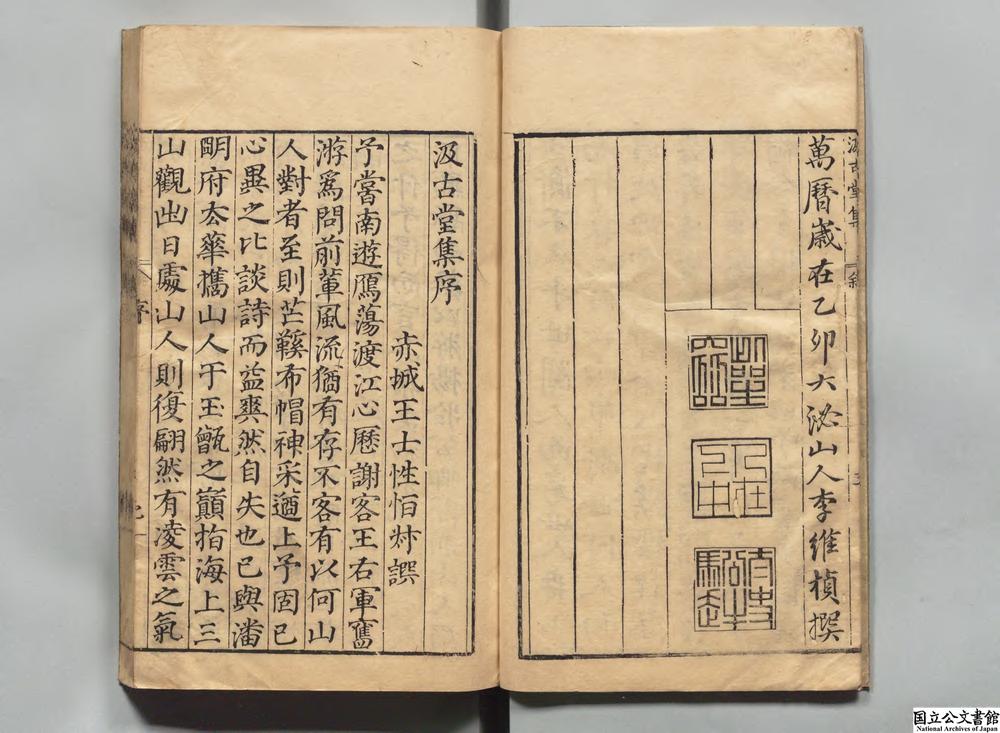 汲古堂集 敘 三
萬曆歲在乙卯大泌山人李維楨撰
太史公牛馬走
汲古堂集序
赤城王士性恒叔譔
予嘗南遊鴈蕩渡江心歷謝客王右軍舊
游爲問前輩風流猶有存不客有以何山
人對者至則芒鞵布帽神采遒上予固已
心異之比談詩而益爽然自失也已與潘
明府去華攜山人于玉甑之巔指海上三
山觀出日處山人則復翩然有凌雲之氣
序
国立公文書館
National Archives of Japan